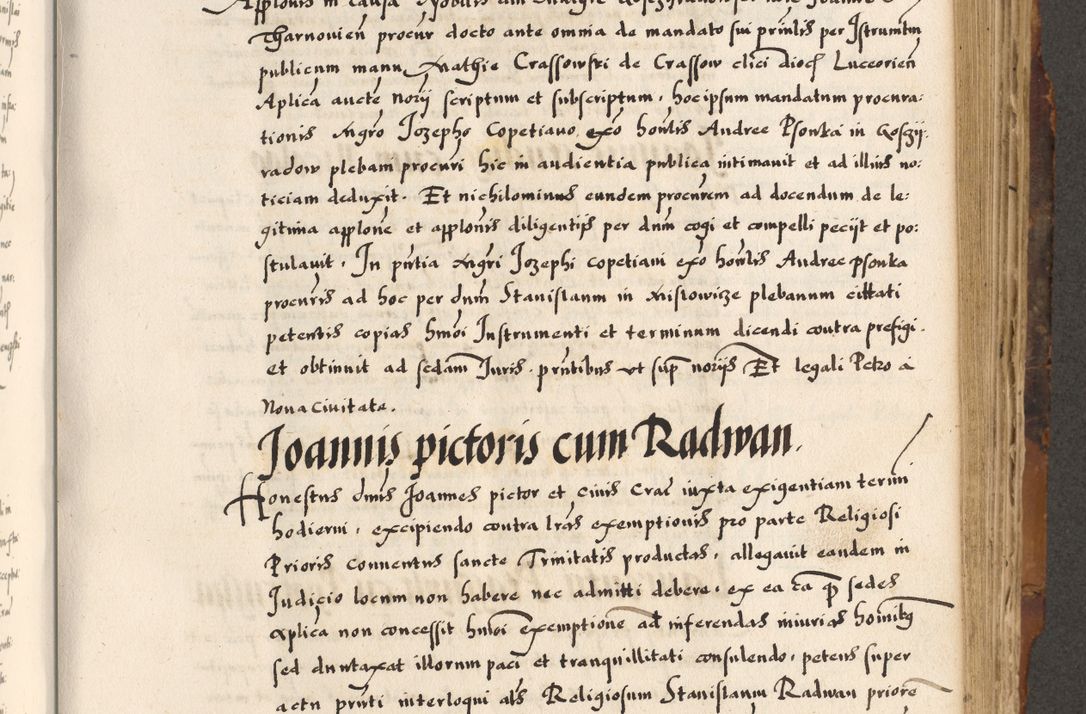 Applonis in causa Nobilis
Tharnovien procur docto ante omnia de mandato sui prinlis per Istrumtm
publicum manu Mathie Crassowski de Crassow clici dioc Luceorien
Aplica aucte norij scriptum et subscriptum, hoc ipsum mandatum procura:
tionis Mgro Jozepho Copetiano, exo honlis Andree Psonka in Goszij:
radow plebam procuri hic in audientia publica intimauit et ad illius no:
ticiam deduxit. Et nichilominus eundem procurem ad docendum de le:
gitima applone et applonis diligentijs per dnm cogi et compelli pecijt et po:
stulauit. In pntia Mgri Jozephi Copetiani exo honlis Andree Psonka
procuris ad hoc per dnm Stanislaum in Mislowicze plebanum cittati
petentis copias hmoi Instrumenti et terminum dicendi contra prefigi.
et obtinuit ad scdam Juris. pntibus vt sup norijs Et legali Petro a
Noua Ciuitate.
Joannis pictoris cum Radwan.
Honestus dnus Joannes pictor et ciuis Crac iuxta exigentiam termi
hodierni, excipiendo contra lras exemptionis pro parte Religiosi
Prioris conuentus sancte Trinitatis productas, allegauit eandem in
Judicio locum non habere nec admitti debere, ex ea ca q sedes
Aplica non concessit hmoi exemptione ad inferendas iniurias hominibq
sed duntaxat illorum paci et tranquillitati consulendo, petens super
actu pnti interloqui als Religiosum Stanislaum Radwan priore